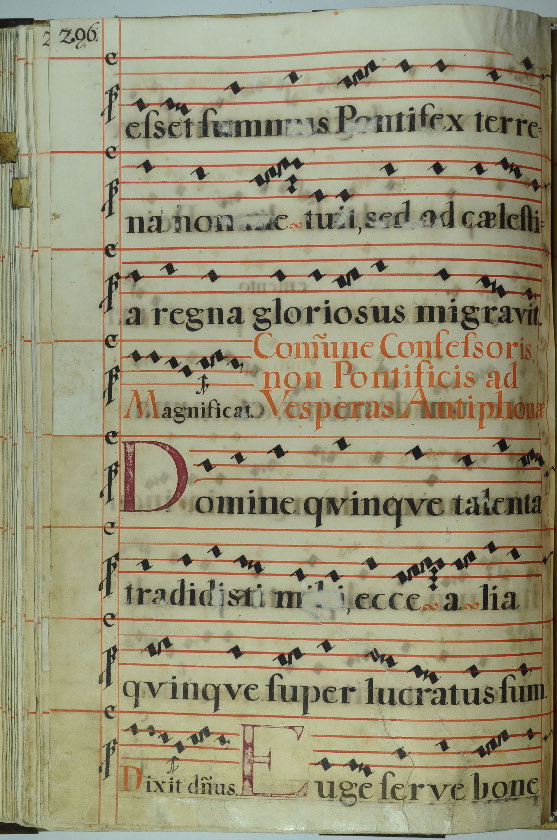 296.
eſset ſummus Pontifex terre-
na non me~tuit, sed ad cæleſti-
a regna gloriosus migravit.
Com̃une Confeſsoris
non Pontificis ad
Magnificat. Vesperas Antiphona
Domine qvinqve talenta
tradidisti mihi, ecce ~ a ~ lia
qvinqve ſuper lucratus ſum
Dixit dñus. Euge ſerve bone